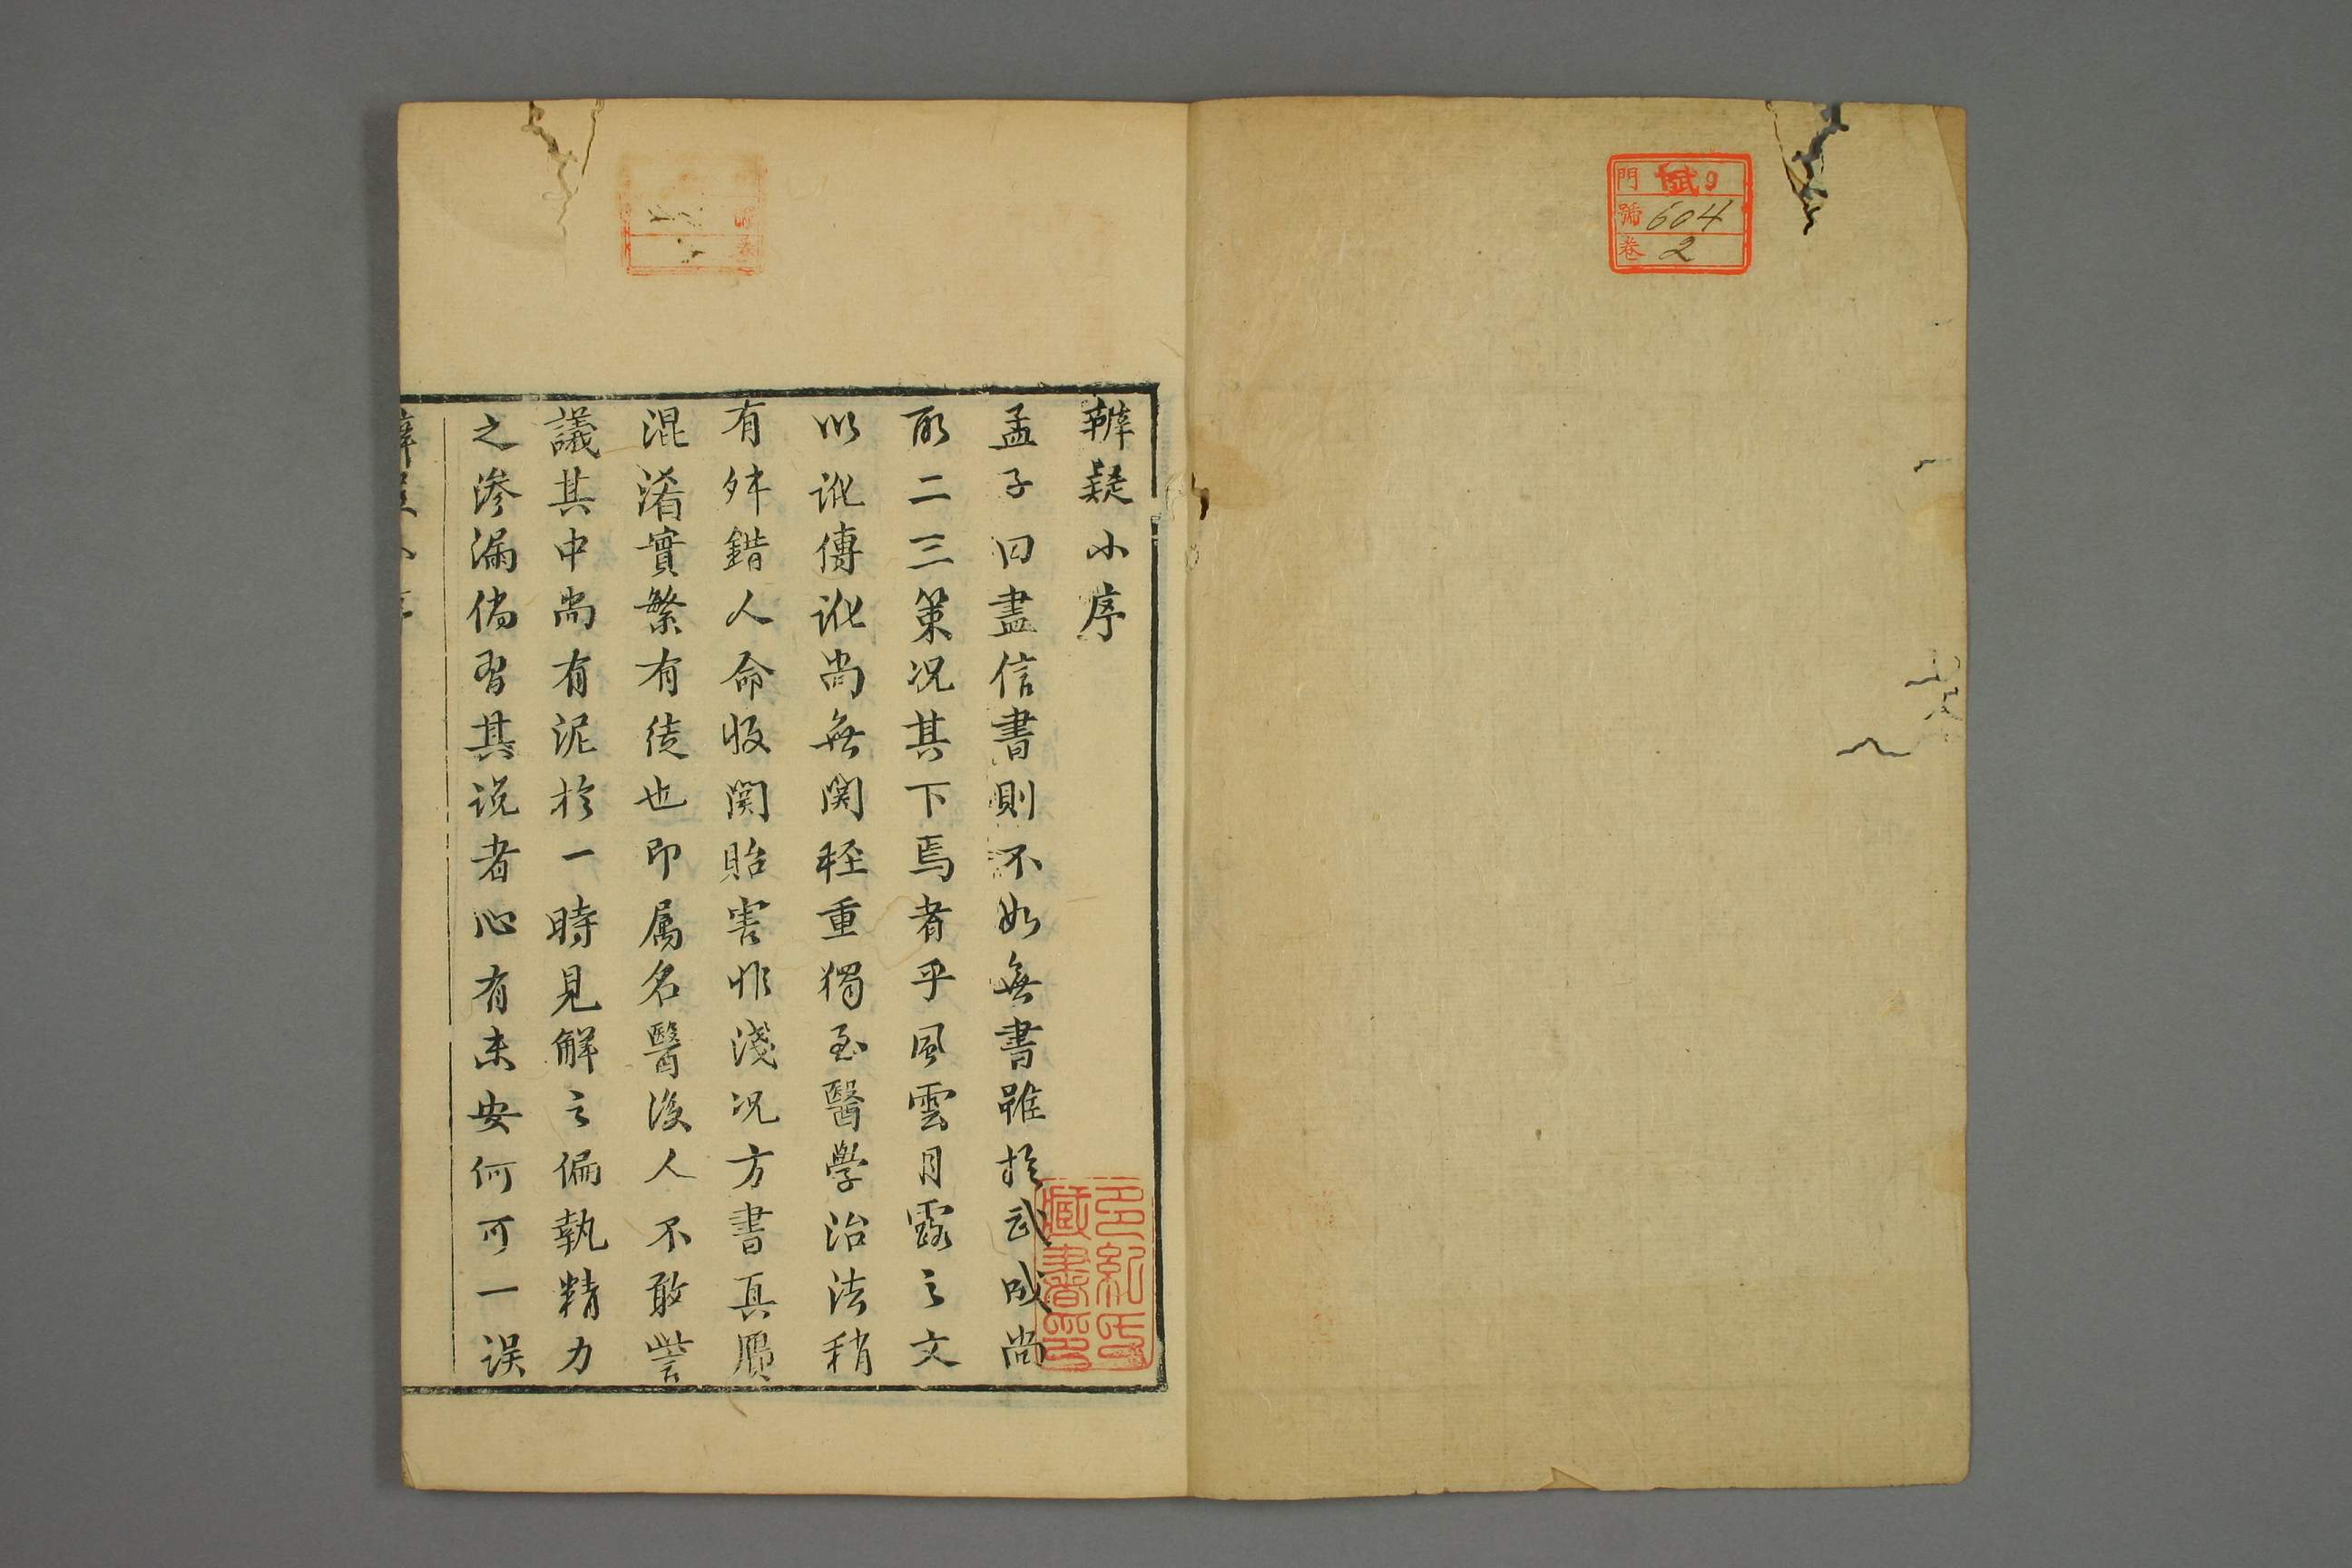 門 貳9
號 604
卷 2
辨疑小序
孟子曰盡信書則不如無書雖於武成尚
取二三策况其下焉者乎風雲月露之文
以訛傳訛尚無関軽重獨至醫學治法稍
有舛錯人命攸関貽害非淺况方書真贋
混淆實繁有徒也即属名醫後人不敢訾
議其中尚有泥於一時見解之偏執精力
之滲漏倘習其说者心有未安何可一误
多紀氏
藏書印